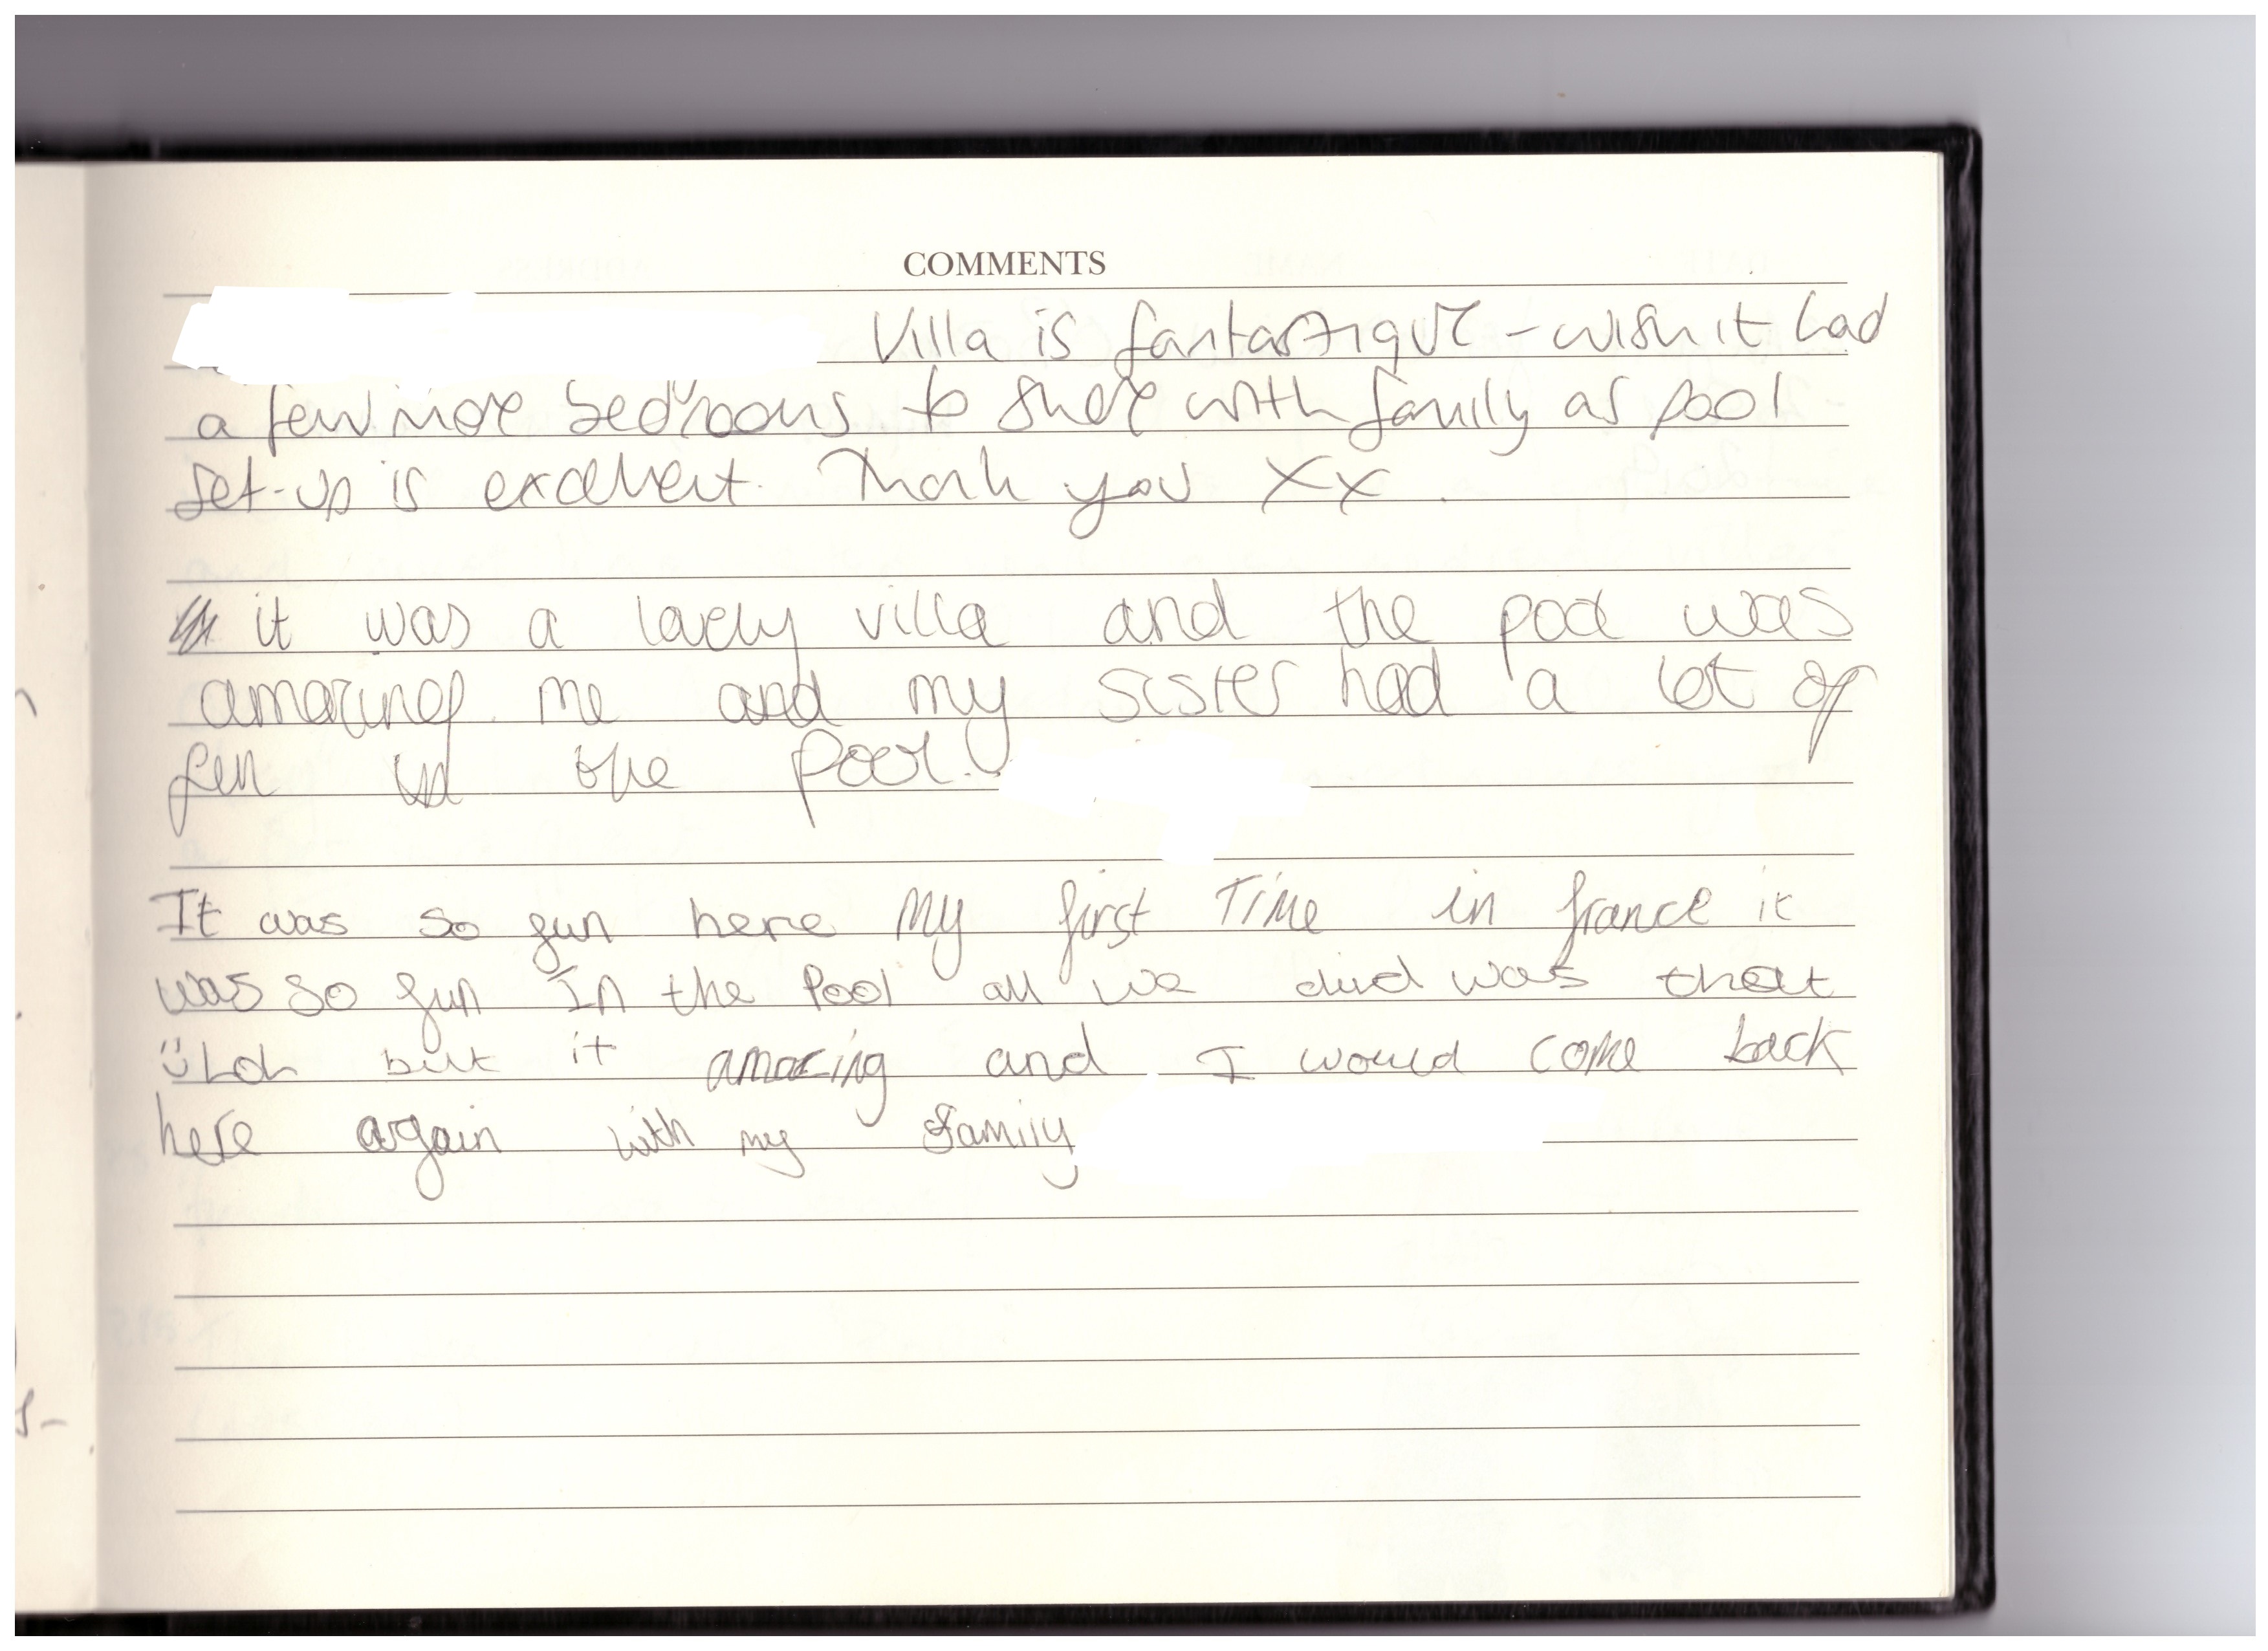 COMMENTS
Villa is fantastique - wish it had
a few more bedrooms to share with family as pool
set-up is excellent. Thank you xx
it was a lovely villa and the pool was
amazing me and my sister had a lot of
fun in the pool.
It was so fun here My first Time in france it
was so fun In the Pool all we did was that
Lol but it amazing and I would come back
here again with my family